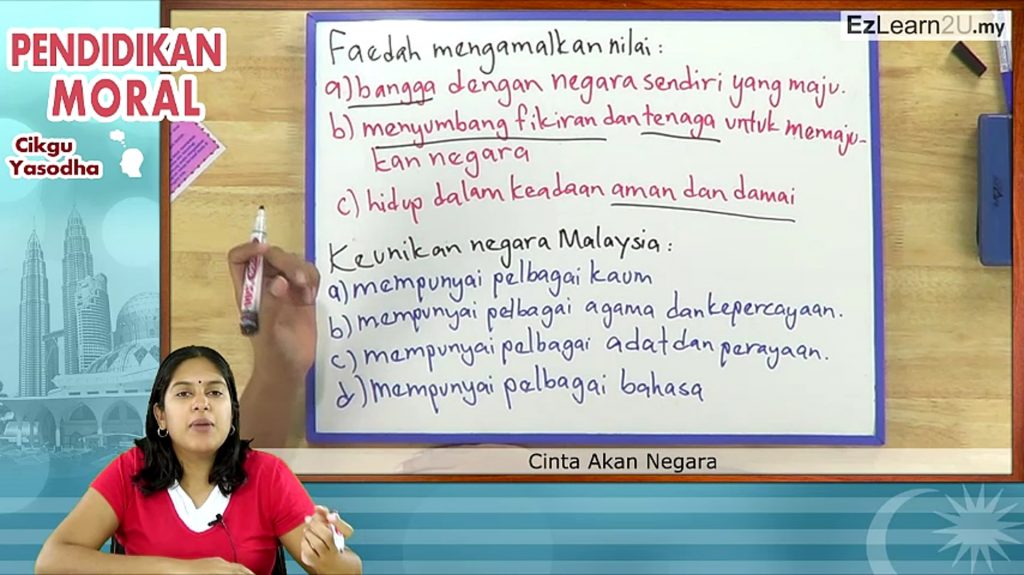 PENDIDIKAN
MORAL
Cikgu
Yasodha
EzLearn2U.my
Faedah mengamalkan nilai :
a) bangga dengan negara sendiri yang maju.
b) menyumbang fikiran dan tenaga untuk memaju-
kan negara
c) hidup dalam keadaan aman dan damai
Keunikan negara Malaysia :
a) mempunyai pelbagai kaum
b) mempunyai pelbagai agama dan kepercayaan.
c) mempunyai pelbagai adat dan perayaan.
d) mempunyai pelbagai bahasa
Cinta Akan Negara